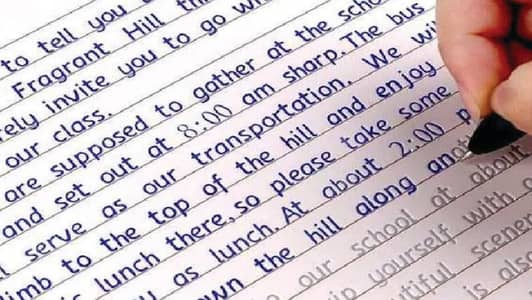 to tell you
Fragrant Hill
invite you to go
our class.
are supposed to gather at the
and set out at 8:00 am sharp. The bus
serve as our transportation. We
to the top of the hill and enjoy
lunch there, so please take some
as lunch. At about 2:00
the hill along
our school at about
yourself with
scene
is